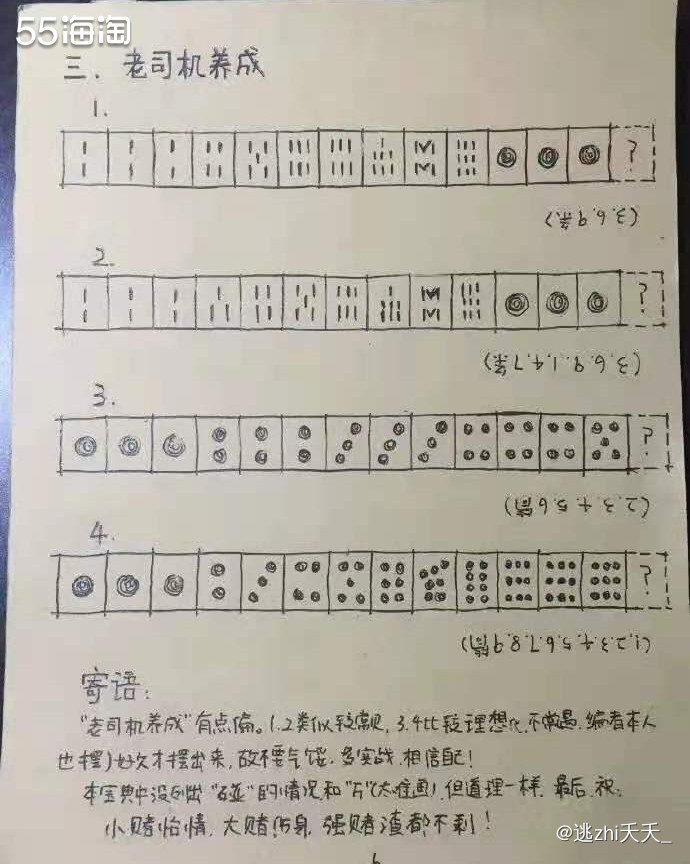 55海淘
三. 老司机养成
1.
?
(3.6.9条)
2.
?
(3.6.9.1.4.7条)
3.
?
(2.3.4.5.6筒)
4.
?
(1.2.3.4.5.6.7.8.9筒)
寄语:
"老司机养成"有点偏。1.2类似较常见, 3.4比较理想化,不常遇.编者本人
也摆了好久才摆出来,故不要气馁.多实战.相信自己!
本宝典中没列出"碰"的情况和"万"(太难画),但道理一样.最后.祝:
小赌怡情.大赌伤身.强赌渣都不剩!
6
@逃zhi夭夭_